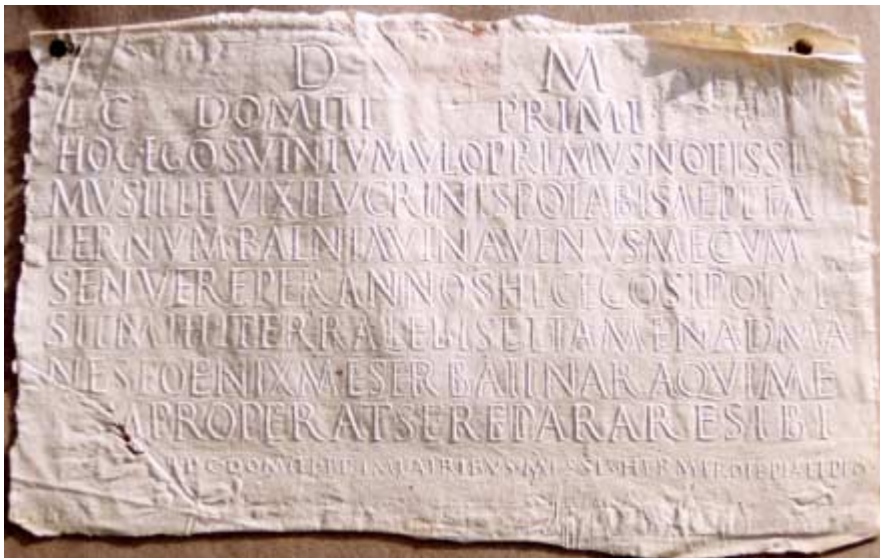 D M
L C DOMITI PRIMI
HOC EGO SV IN TVMVLO PRIMVS NOTISSI
MVS ILLE VIXI LVCRINIS POTABI SAEPE FA
LERNVM BALNIA VINA VENVS MECVM
SENVERE PER ANNOS HEC EGO SI POTVI
SIT MIHI TERRA LEBIS ET TAMEN AD MA
NES FOENIX ME SERBAT IN ARA QVI ME
PROPERAT SE REPARARE SIBI
C DOMITI PRIMI A TRIBVS MESSIS HERMEROTE PIA ET PIO